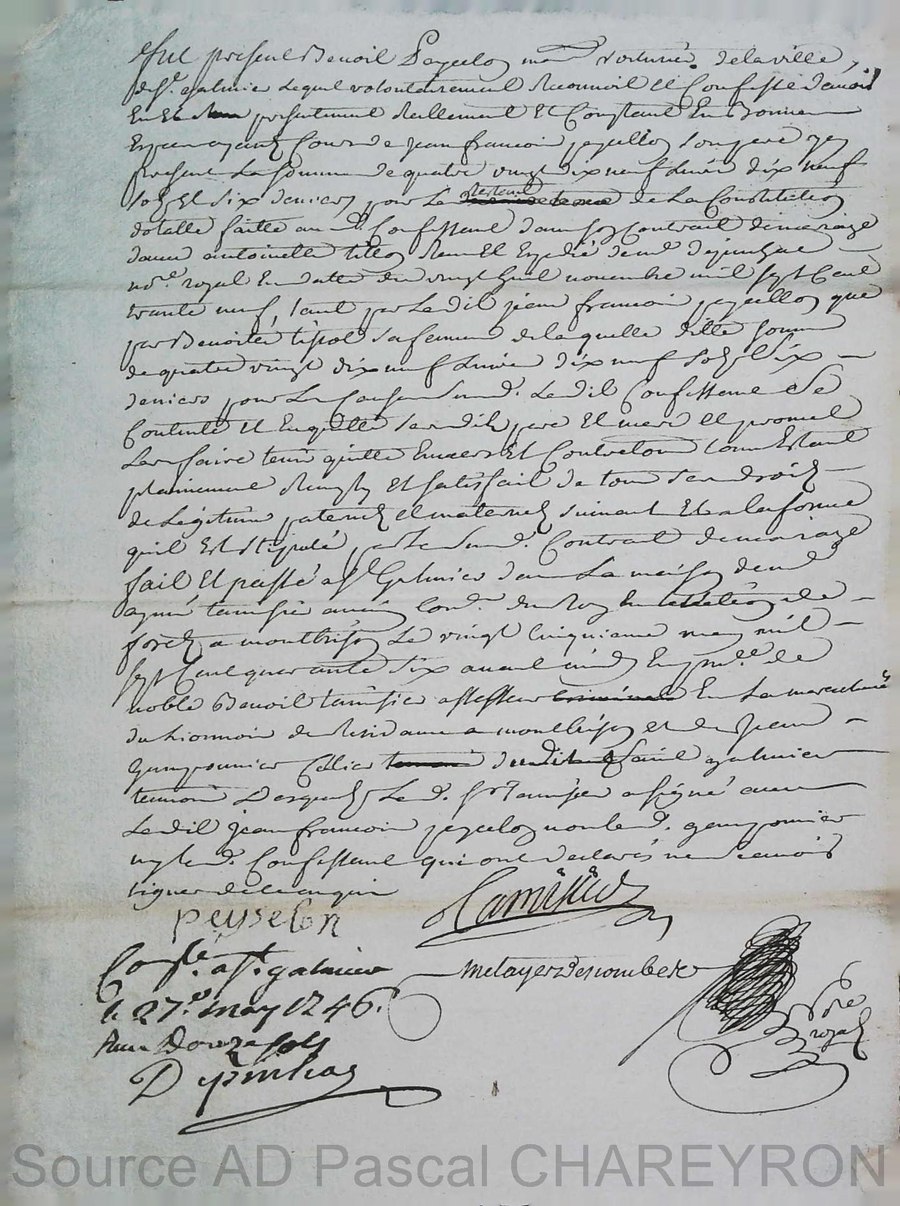 fut present Benoit Peycelon md voiturié dela ville,
de St. galmier Lequel volontairement Reconnoit et Confesse d'avoir
Eu et presentement Réellement et Constant En
Espece ayant Cours de jean francois peycellon son pere icy
present La somme de quatre vingt dix neuf Livres dix neuf
sols et six deniers pour Le restant de La Constitution
dotalle faitte au d. Confessant dans son Contrait de mariage
davec antoinette Reçu Et Expedié de me. depinhac
nore. royal En datte du vingt huit novembre mil sept Cent
trante neuf, tant par Ledit jean francois peycellon que
par Benoite tisot sa femme de laquelle ditte somme
de quatre vingt dix neuf Livres dix neuf sols et six
deniers pour La Cause susd. Le dit Confessant Se
Contente et En quitte Sesdits pere et mere et promet
Les faire tenir quitte Envers Et Contre tous Comme Estant
plainement Remply Et satisfait de tous Ses droits
de Legitime paternels et maternels suivant Et a la forme
quil Est stipulé par Le Susd. Contrait de mariage
fait Et passé a St. Galmier dans La maison de me.
aymé tamisié ancien Conr. du Roy En Lelection de
forez a montbrison Le vingt Cinquieme may mil
sept Cent quarante six avant midy En pnce. de
noble Benoit tamisier assesseur En La marechaussée
du Lionnois de Residance a montbrison et de jean
gamponnier Cellier dudit Saint galmier
temoins Desquels Le d. Sr. tamisier a signé avec
Ledit jean francois peycelon non Led. gamponier
ny Led. Confessant qui ont declarés ne Scavoir
signer de ce Enquis
peysselon
Tamisier
Conlé. a St. galmier
metayer Descombes
le 27e. may 1746.
Reçu Douze sols
nore
royal
Depinhac
Source AD Pascal CHAREYRON